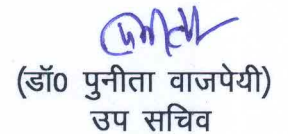 (डॉ0 पुनीता वाजपेयी)
उप सचिव